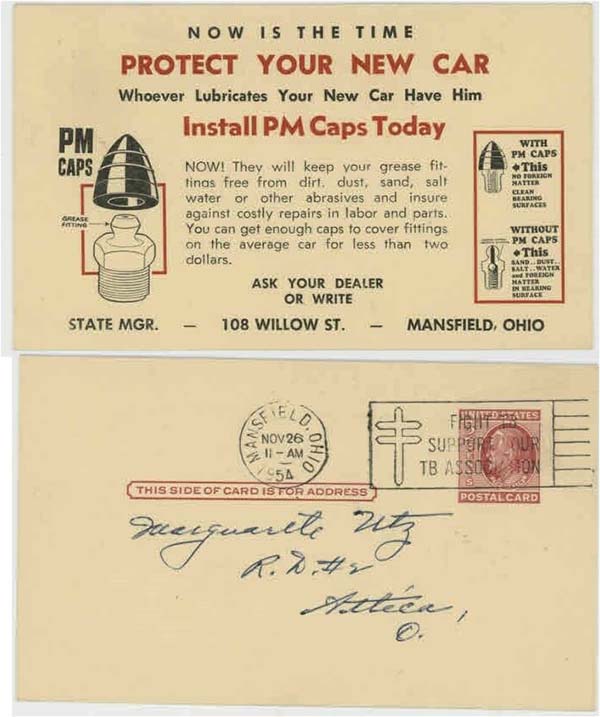 NOW IS THE TIME
PROTECT YOUR NEW CAR
Whoever Lubricates Your New Car Have Him
Install PM Caps Today
PM
CAPS
GREASE
FITTING
NOW! They will keep your grease fit-
tings free from dirt, dust, sand, salt
water or other abrasives and insure
against costly repairs in labor and parts.
You can get enough caps to cover fittings
on the average car for less than two
dollars.
ASK YOUR DEALER
OR WRITE
WITH
PM CAPS
This
NO FOREIGN
MATTER
CLEAN
BEARING
SURFACES
WITHOUT
PM CAPS
This
SAND..DUST..
SALT..WATER
and FOREIGN
MATTER
IN BEARING
SURFACE
STATE MGR. — 108 WILLOW ST. — MANSFIELD, OHIO
MANSFIELD, OHIO
NOV 26
11-AM
1954
FIGHT TB
SUPPORT YOUR
TB ASSOCIATION
UNITED STATES
POSTAL CARD
THIS SIDE OF CARD IS FOR ADDRESS
Marguarete Utz
R.D. #2
Attica,
O.